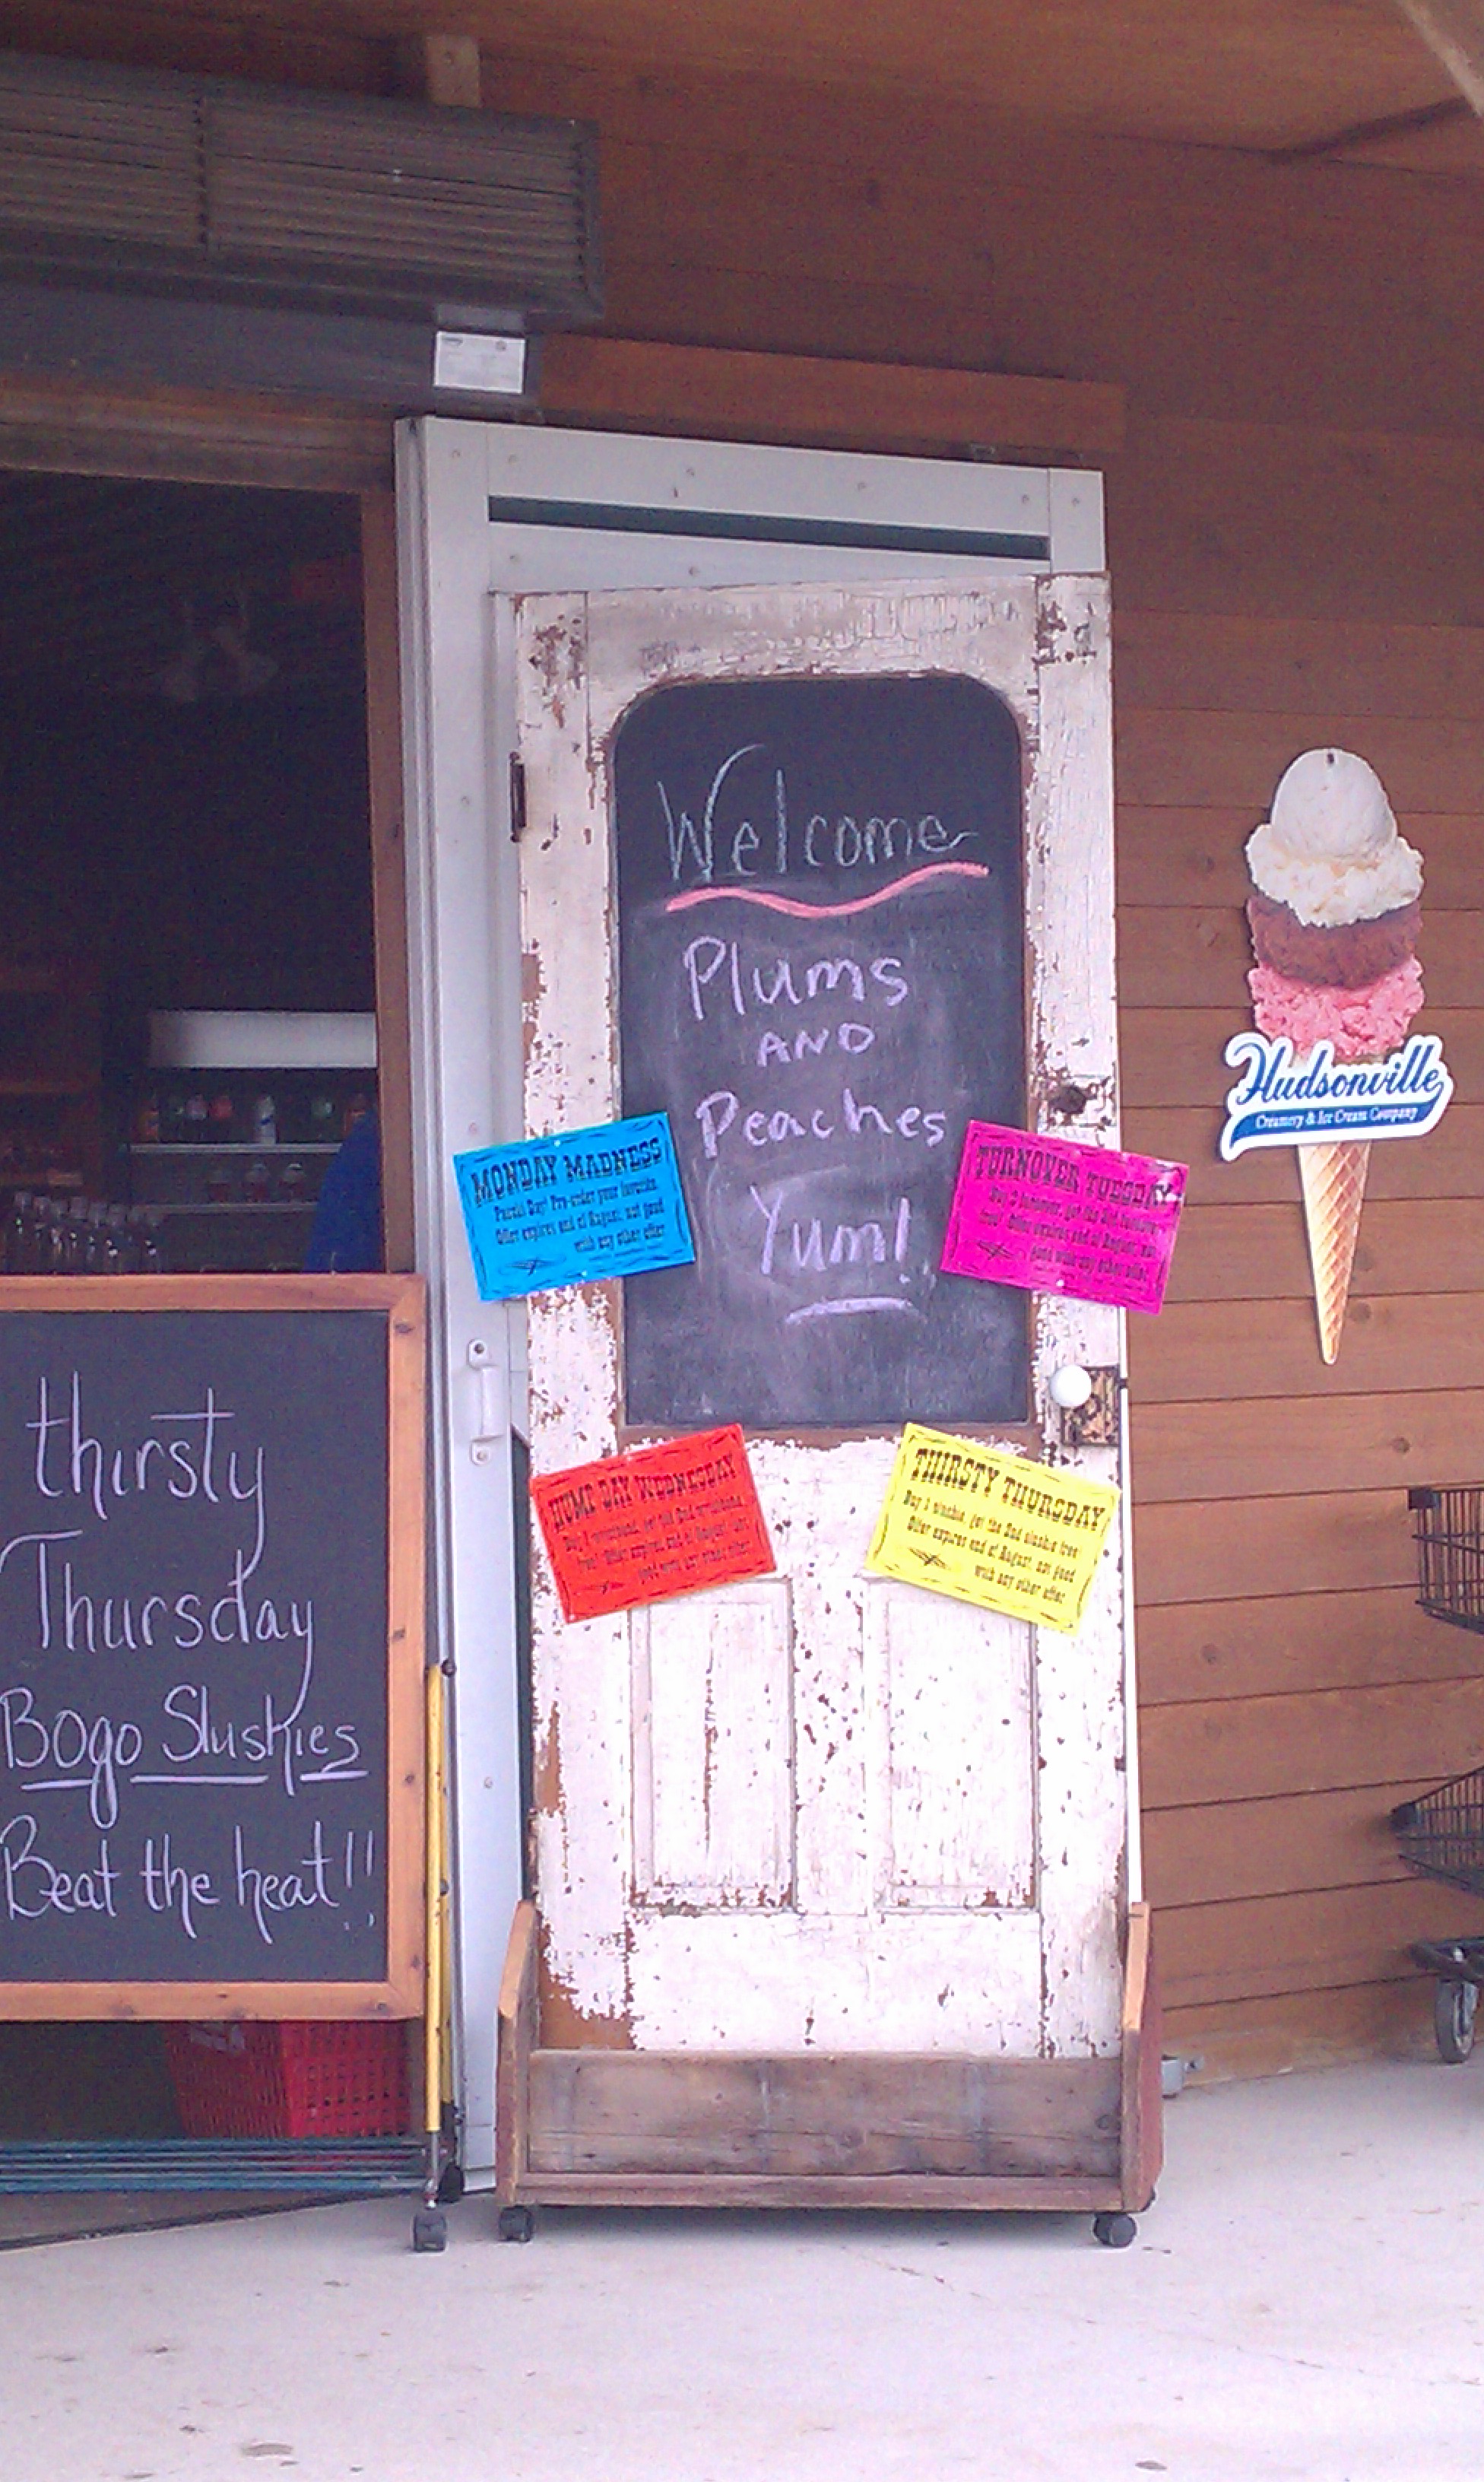 Welcome
Plums
AND
Peaches
Yum!
MONDAY MADNESS
Parfait Day! Pre-order your favorite.
Offer expires end of August, not good
with any other offer
TURNOVER TUESDAY
Buy 2 turnovers, get the 3rd turnover
free! Offer expires end of August, not
good with any other offer.
HUMP DAY WEDNESDAY
free! Offer expires end of August, not
good with any other offer
THIRSTY THURSDAY
Buy 1 slushie, get the 2nd slushie free
Offer expires end of August, not good
with any other offer
Hudsonville
Creamery & Ice Cream Company
thirsty
Thursday
Bogo Slushies
Beat the heat!!